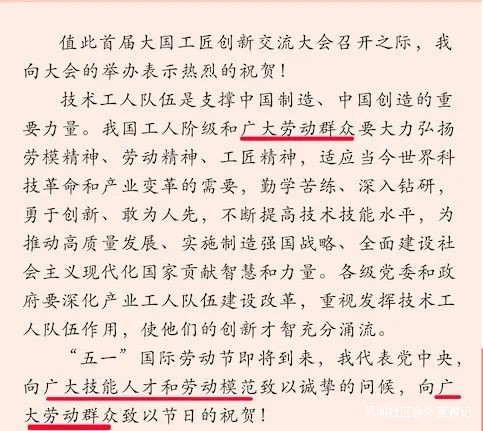 值此首届大国工匠创新交流大会召开之际，我
向大会的举办表示热烈的祝贺！
技术工人队伍是支撑中国制造、中国创造的重
要力量。我国工人阶级和广大劳动群众要大力弘扬
劳模精神、劳动精神、工匠精神，适应当今世界科
技革命和产业变革的需要，勤学苦练、深入钻研，
勇于创新、敢为人先，不断提高技术技能水平，为
推动高质量发展、实施制造强国战略、全面建设社
会主义现代化国家贡献智慧和力量。各级党委和政
府要深化产业工人队伍建设改革，重视发挥技术工
人队伍作用，使他们的创新才智充分涌流。
“五一”国际劳动节即将到来，我代表党中央，
向广大技能人才和劳动模范致以诚挚的问候，向广
大劳动群众致以节日的祝贺！